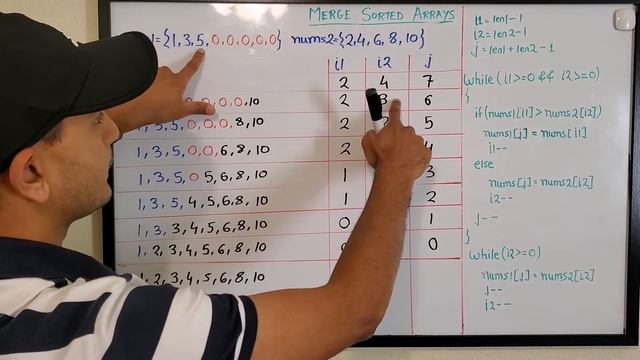 MERGE SORTED ARRAYS
1={1,3,5,0,0,0,0,0} nums2={2,4,6,8,10}
i1 i2 j
2 4 7
0,0,0,10 2 3 6
1,3,5,0,0,0,8,10 2 5
1,3,5,0,0,6,8,10 2 4
1,3,5,0 5,6,8,10 1 3
1,3,5,4,5,6,8,10 1 2
1,3,3,4,5,6,8,10 0 1
1,2,3,4,5,6,8,10 0
1,2,3,4,5,6,8,10
i1=len1-1
i2=len2-1
j=len1+len2-1
while(i1>=0 && i2>=0)
{
if(nums1[i1]>nums2[i2])
nums1[j]=nums[i1]
i1--
else
nums[j]=nums2[i2]
i2--
j--
}
while(i2>=0)
nums1[j]=nums2[i2]
j--
i2--